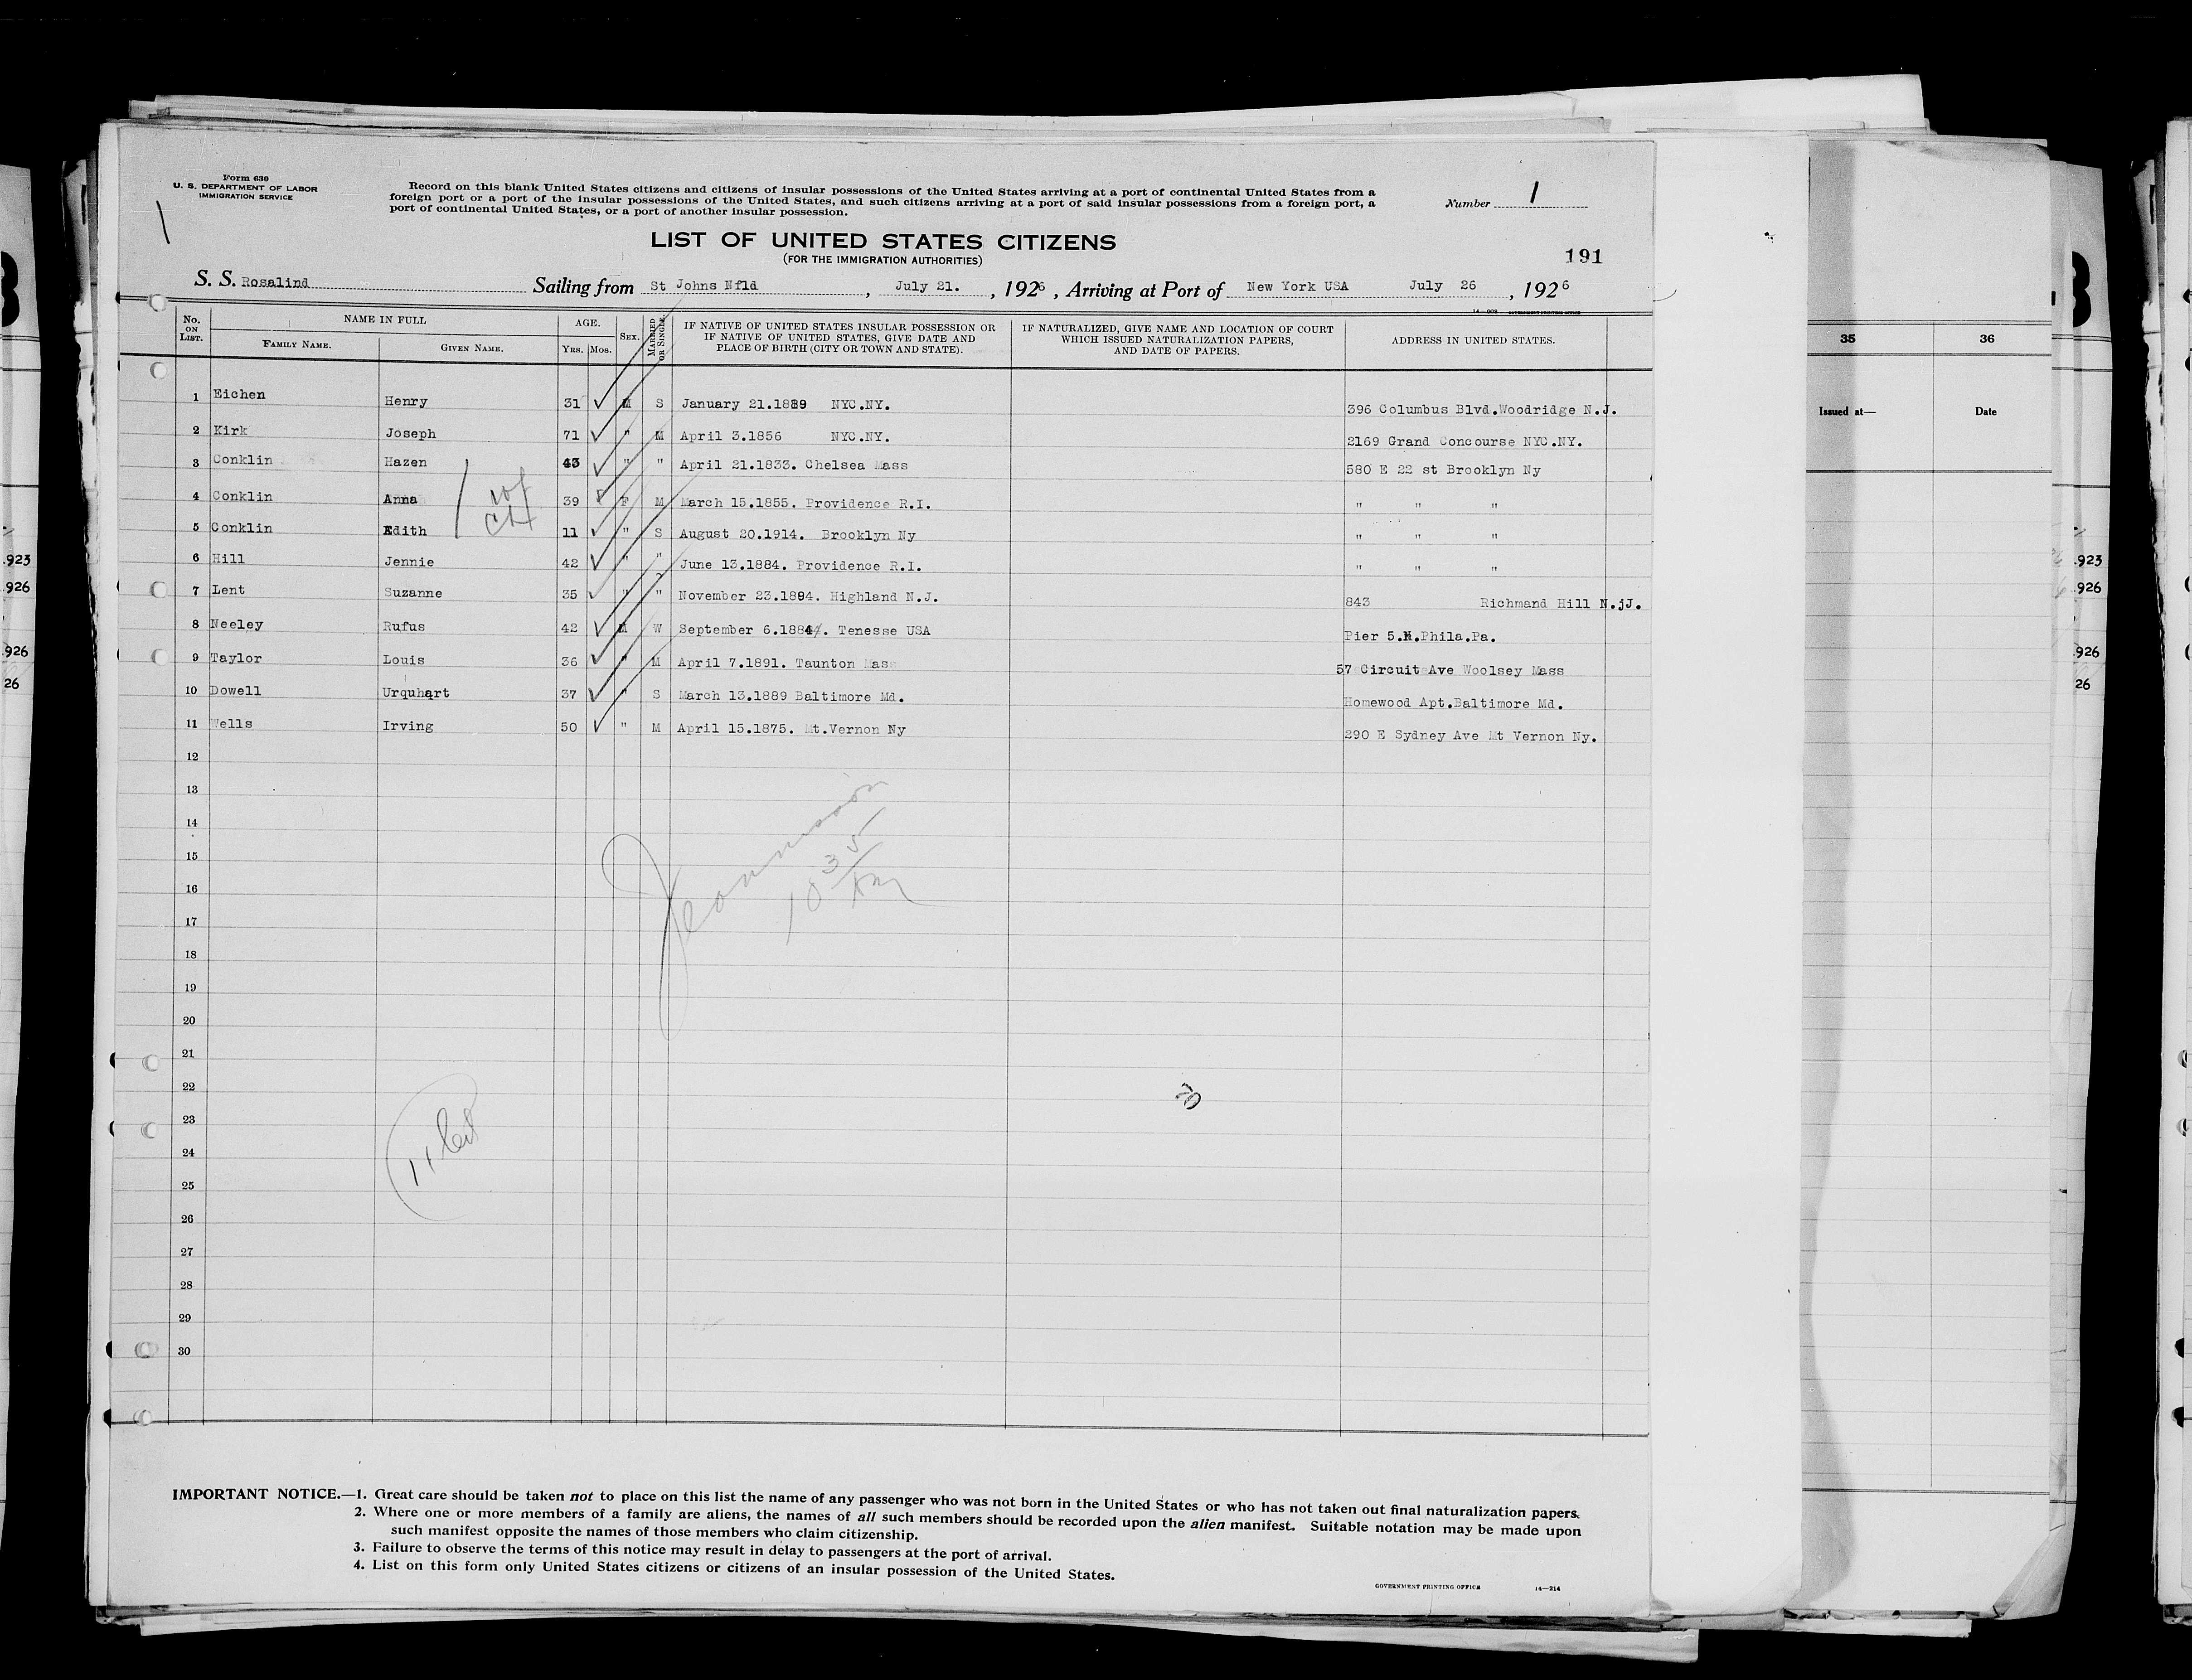 Form 630
U. S. DEPARTMENT OF LABOR
IMMIGRATION SERVICE
Record on this blank United States citizens and citizens of insular possessions of the United States arriving at a port of continental United States from a
foreign port or a port of the insular possessions of the United States, and such citizens arriving at a port of said insular possessions from a foreign port, a
port of continental United States, or a port of another insular possession.
Number 1
LIST OF UNITED STATES CITIZENS
(FOR THE IMMIGRATION AUTHORITIES)
191
S. S. Rosalind Sailing from St Johns Nfld , July 21. , 1926 , Arriving at Port of New York USA July 26 , 1926
No. ON LIST. NAME IN FULL FAMILY NAME. GIVEN NAME. AGE. YRS. MOS. SEX. MARRIED OR SINGLE. IF NATIVE OF UNITED STATES INSULAR POSSESSION OR IF NATIVE OF UNITED STATES, GIVE DATE AND PLACE OF BIRTH (CITY OR TOWN AND STATE). IF NATURALIZED, GIVE NAME AND LOCATION OF COURT WHICH ISSUED NATURALIZATION PAPERS, AND DATE OF PAPERS. ADDRESS IN UNITED STATES.
1 Eichen Henry 31 M S January 21.1889 NYC.NY. 396 Columbus Blvd.Woodridge N.J.
2 Kirk Joseph 71 " M April 3.1856 NYC.NY. 2169 Grand Concourse NYC.NY.
3 Conklin Hazen 43 " " April 21.1833. Chelsea Mass 580 E 22 st Brooklyn Ny
4 Conklin Anna wf 39 F M March 15.1855. Providence R.I. " " "
5 Conklin Edith ch 11 " S August 20.1914. Brooklyn Ny " " "
6 Hill Jennie 42 " " June 13.1884. Providence R.I. " " "
7 Lent Suzanne 35 " " November 23.1894. Highland N.J. 843 Richmand Hill N.jJ.
8 Neeley Rufus 42 M W September 6.1884. Tenesse USA Pier 5.N.Phila.Pa.
9 Taylor Louis 36 " M April 7.1891. Taunton Mass 57 Circuit Ave Woolsey Mass
10 Dowell Urquhart 37 " S March 13.1889 Baltimore Md. Homewood Apt.Baltimore Md.
11 Wells Irving 50 " M April 15.1875. Mt.Vernon Ny 290 E Sydney Ave Mt Vernon Ny.
12
13
14
15
16
17
18
19
20
21
22
23
24
25
26
27
28
29
30
10 35
IMPORTANT NOTICE.—1. Great care should be taken not to place on this list the name of any passenger who was not born in the United States or who has not taken out final naturalization papers.
2. Where one or more members of a family are aliens, the names of all such members should be recorded upon the alien manifest. Suitable notation may be made upon
such manifest opposite the names of those members who claim citizenship.
3. Failure to observe the terms of this notice may result in delay to passengers at the port of arrival.
4. List on this form only United States citizens or citizens of an insular possession of the United States.
GOVERNMENT PRINTING OFFICE 14—214
35 36
Issued at— Date
923
926
926
26